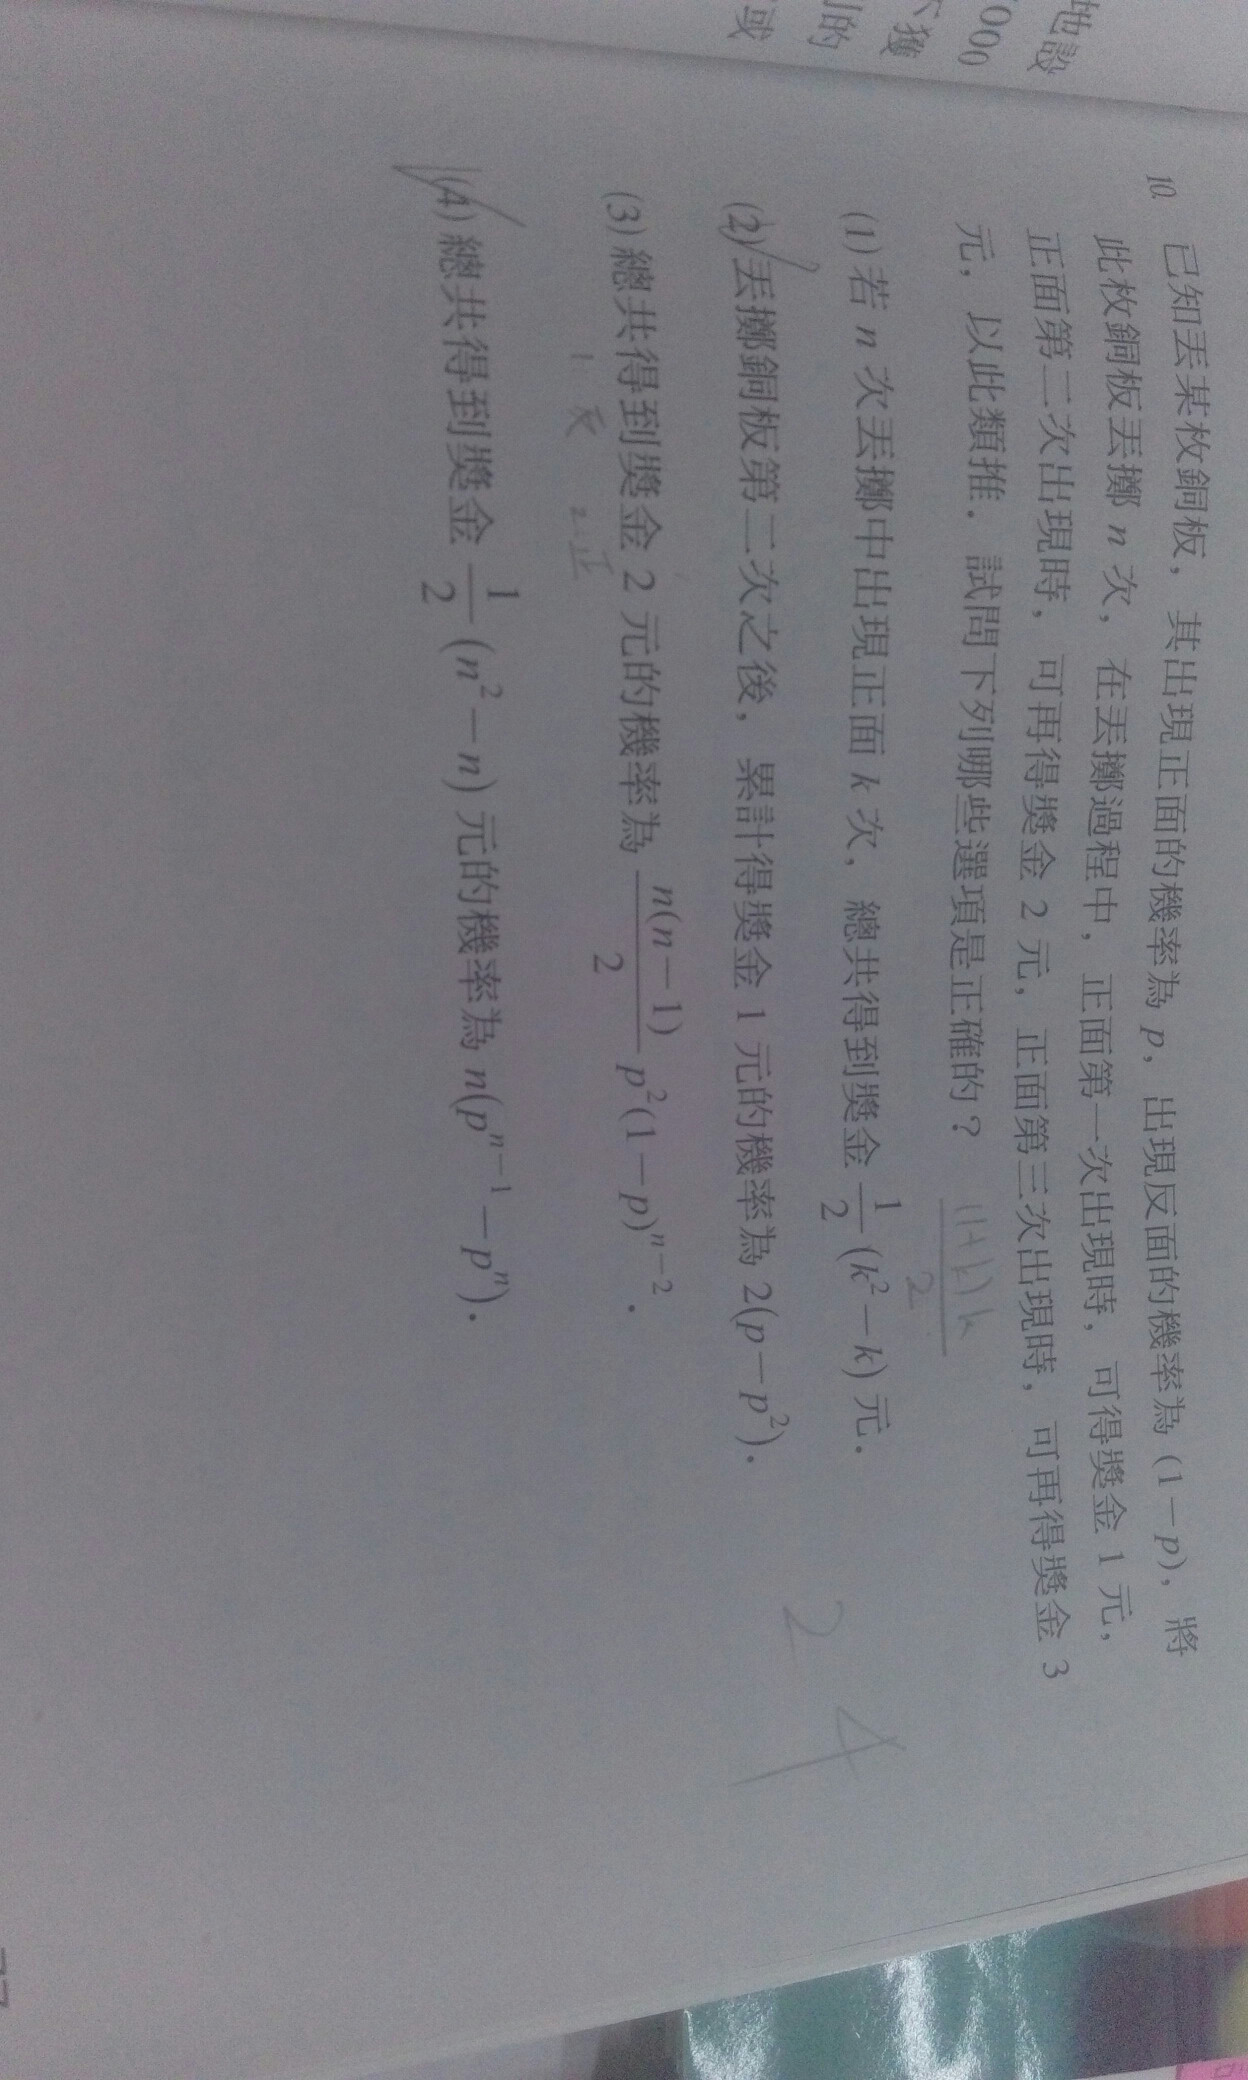 地設
000
不獲
的
或
10. 已知丟某枚銅板，其出現正面的機率為 p，出現反面的機率為 (1－p)，將
此枚銅板丟擲 n 次，在丟擲過程中，正面第一次出現時，可得獎金 1 元，
正面第二次出現時，可再得獎金 2 元，正面第三次出現時，可再得獎金 3
元，以此類推．試問下列哪些選項是正確的？ (1+k)k/2
(1) 若 n 次丟擲中出現正面 k 次，總共得到獎金 1/2 (k²－k) 元．
(2) 丟擲銅板第二次之後，累計得獎金 1 元的機率為 2(p－p²)．
(3) 總共得到獎金 2 元的機率為 n(n－1)/2 p²(1－p)ⁿ⁻²．
1反 2正
(4) 總共得到獎金 1/2 (n²－n) 元的機率為 n(pⁿ⁻¹－pⁿ)．
2 4